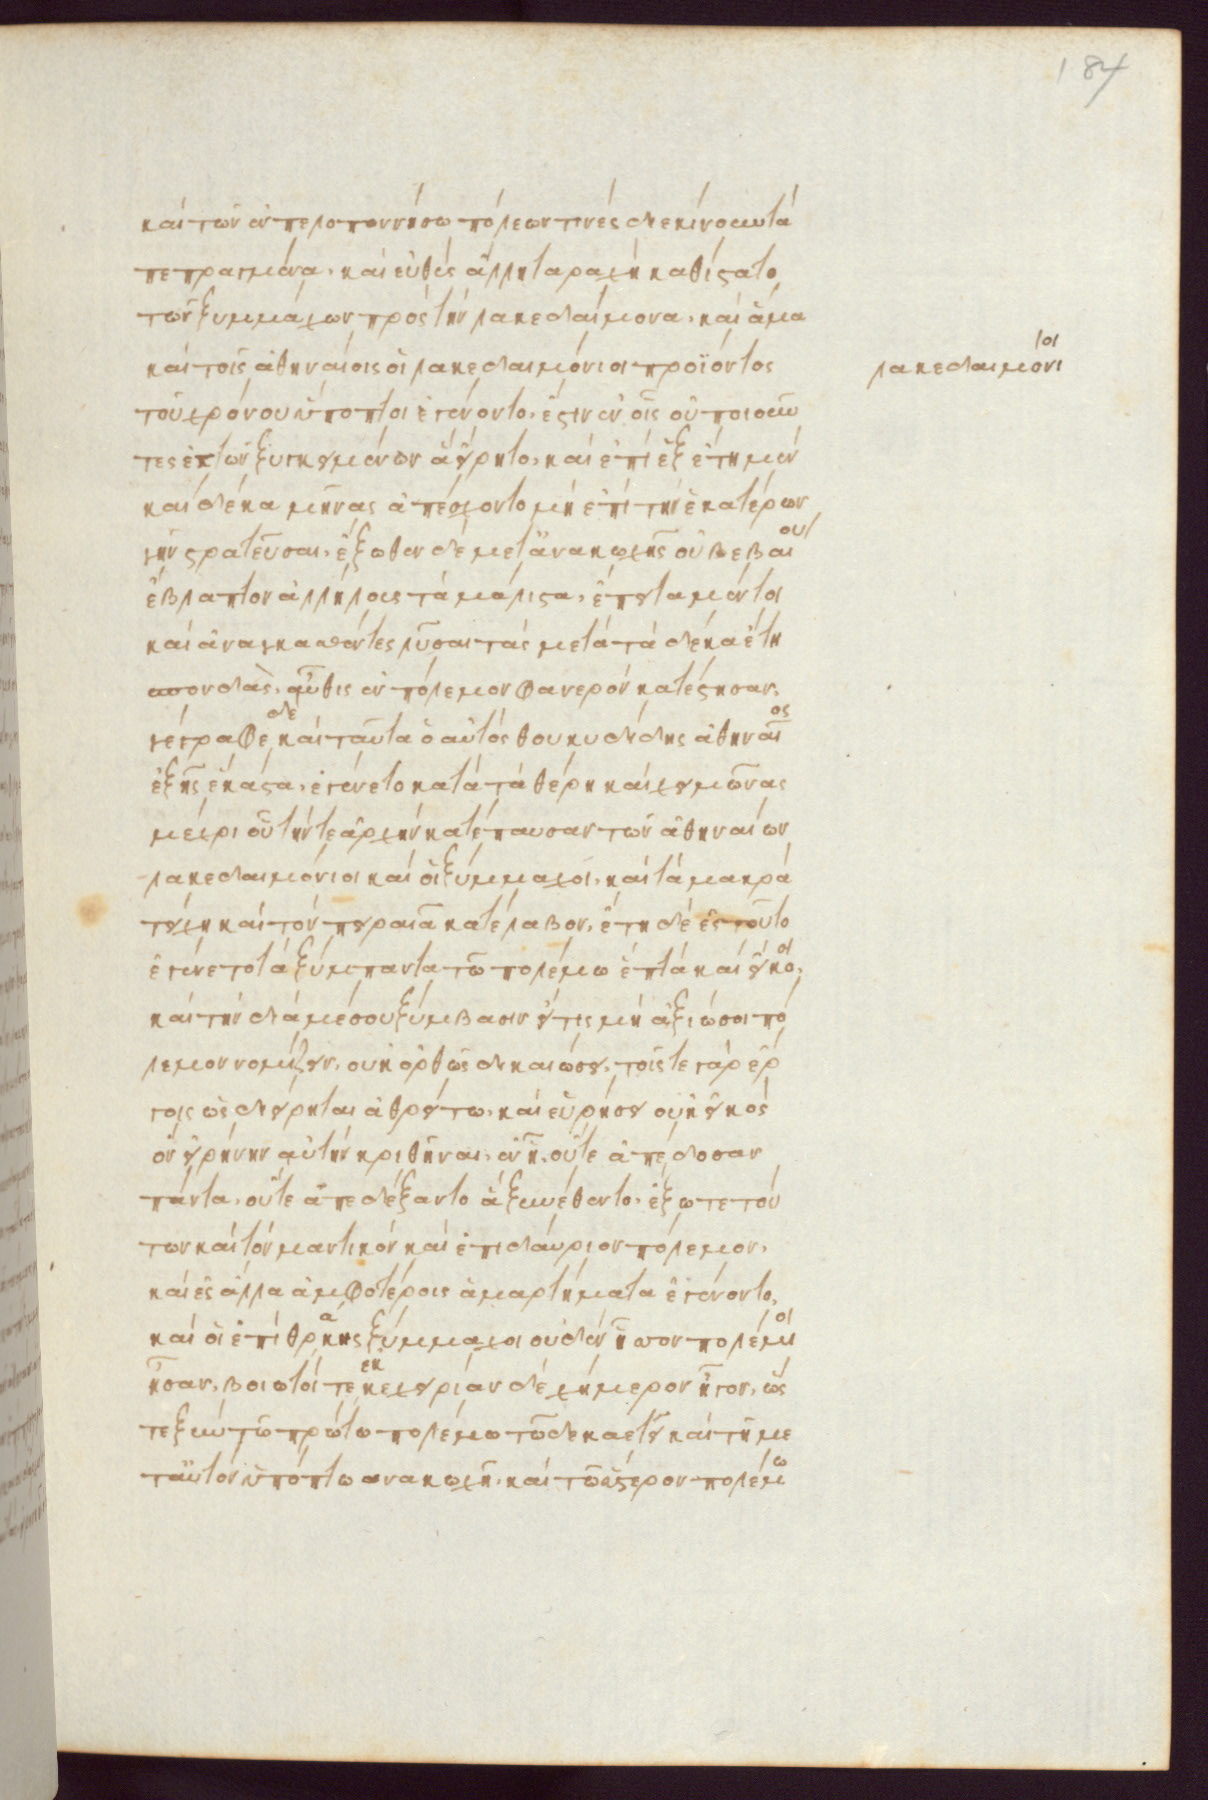 184
καὶ τῶν ἐν πελοποννήσω πόλεών τινὲς διεκίνουν τὰ
πεπραγμένα, καὶ εὐθὺς ἄλλη ταραχὴ καθίστατο
τῶν ξυμμάχων πρὸς τὴν λακεδαίμονα, καὶ ἅμα
καὶ τοῖς ἀθηναίοις οἱ λακεδαιμόνιοι προϊόντος
λακεδαιμόνιοι
τοῦ χρόνου ὕποπτοι ἐγένοντο, ἔστιν ἐν οἷς οὐ ποιοῦν
τες ἐκ τῶν ξυγκειμένων ἃ εἴρητο, καὶ ἐπὶ ἓξ ἔτη μὲν
καὶ δέκα μῆνας ἀπέσχοντο μὴ ἐπὶ τὴν ἑκατέρων
γῆν στρατεῦσαι, ἔξωθεν δὲ μετ' ἀνακωχῆς οὐ βεβαίου
ἔβλαπτον ἀλλήλους τὰ μάλιστα, ἔπειτα μέντοι
καὶ ἀναγκασθέντες λῦσαι τὰς μετὰ τὰ δέκα ἔτη
σπονδὰς, αὖθις ἐν πόλεμον φανερὸν κατέστησαν,
γέγραφε δὲ καὶ ταῦτα ὁ αὐτὸς θουκυδίδης ἀθηναῖος
ἑξῆς ἕκαστα, ἐγένετο κατὰ τὰ θέρη καὶ χειμῶνας
μέχρι οὗ τήν τε ἀρχὴν κατέπαυσαν τῶν ἀθηναίων
λακεδαιμόνιοι καὶ οἱ ξύμμαχοι, καὶ τὰ μακρὰ
τείχη καὶ τὸν πειραιᾶ κατέλαβον, ἔτη δὲ ἐς τοῦτο
ἐγένετο τὰ ξύμπαντα τῶ πολέμω ἑπτὰ καὶ εἴκοσι,
καὶ τὴν διὰ μέσου ξύμβασιν εἴ τις μὴ ἀξιώσοι πό
λεμον νομίζειν, οὐκ ὀρθῶς δικαιώσει, τοῖς τε γὰρ ἔρ
γοις ὡς διείρηται ἀθρείτω, καὶ εὑρήσει οὐκ εἰκὸς
ὂν εἰρήνην αὐτὴν κριθῆναι, ἐν ἧ, οὔτε ἀπέδοσαν
πάντα, οὔτε ἀπεδέξαντο ἃ ξυνέθεντο, ἔξω τε τού
των καὶ τὸν μαντικὸν καὶ ἐπιδαύριον πόλεμον,
καὶ ἐς ἄλλα ἀμφοτέροις ἁμαρτήματα ἐγένοντο,
καὶ οἱ ἐπὶ θράκης ξύμμαχοι οὐδὲν ἧσσον πολέμιοι
ἦσαν, βοιωτοί τε ἐκεχειρίαν δεχήμερον ἦγον, ὥς
τε ξὺν τῶ πρώτω πολέμω τῶ δεκαετεῖ καὶ τῆ με
τ' αὐτὸν ὑπόπτω ανακωχῆ, καὶ τῶ ὕστερον πολέμω